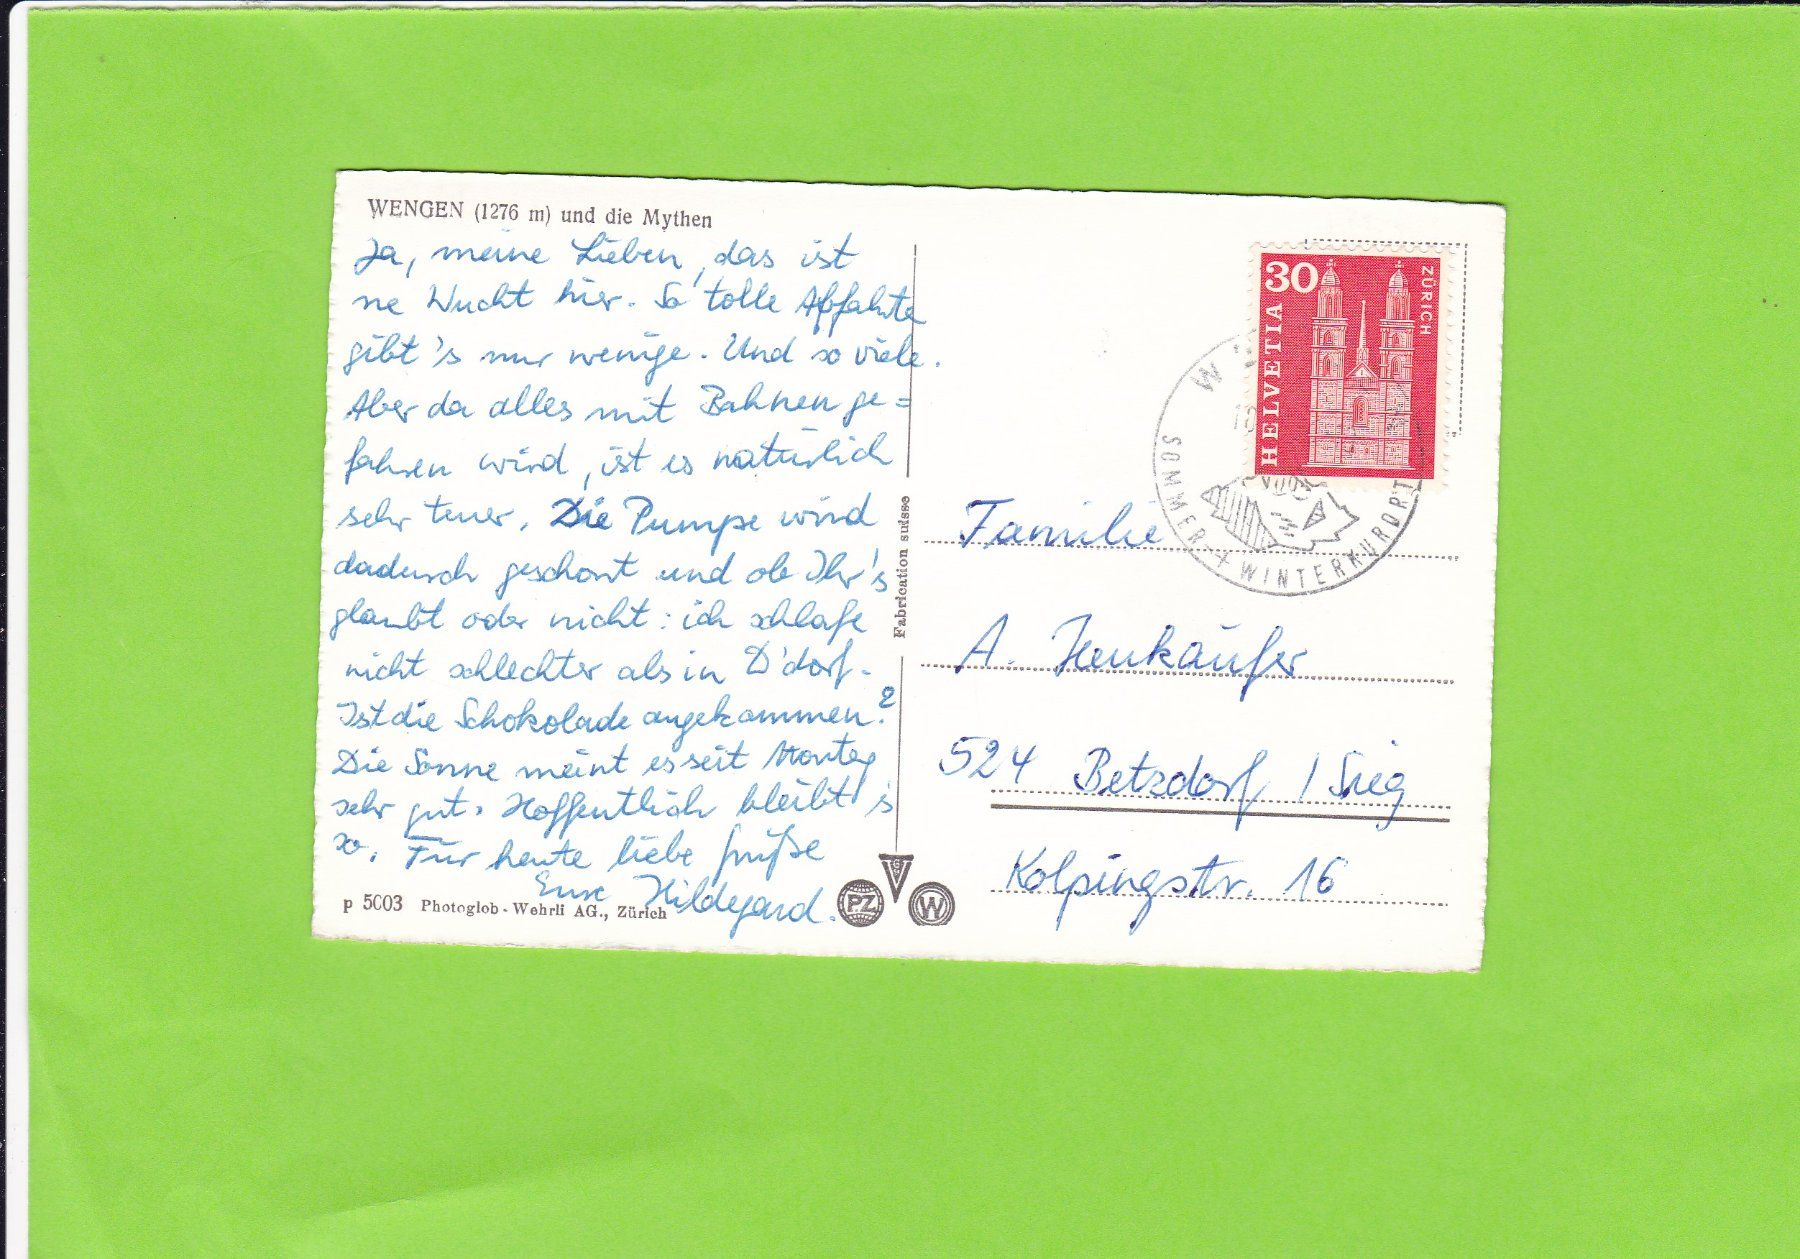 WENGEN (1276 m) und die Mythen
Ja, meine Lieben, das ist
ne Wucht hier. So tolle Abfahrte
gibt's nur wenige. Und so viele.
Aber da alles mit Bahnen ge=
fahren wird, ist es natürlich
sehr teuer. Die Pumpe wird
dadurch geschont und ob Ihr's
glaubt oder nicht: ich schlafe
nicht schlechter als in D'dorf.
Ist die Schokolade angekommen?
Die Sonne meint es seit Montag
sehr gut. Hoffentlich bleibt's
so. Für heute liebe Grüße
Eure Hildegard.
p 5003 Photoglob-Wehrli AG., Zürich
Fabrication suisse
PZ
W
30
HELVETIA
ZÜRICH
SOMMER + WINTERKURORT
Familie
A. Heukäufer
524 Betzdorf / Sieg
Kolpingstr. 16